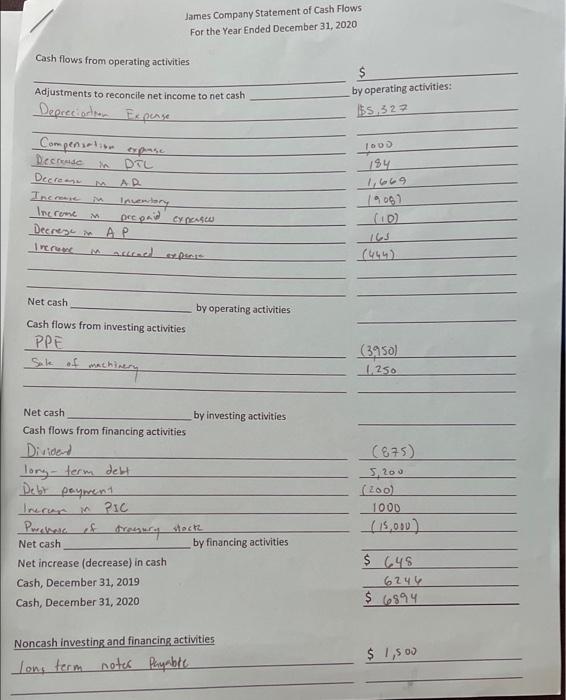 James Company Statement of Cash Flows
For the Year Ended December 31, 2020
Cash flows from operating activities
$
Adjustments to reconcile net income to net cash by operating activities:
Depreciation Expense $5,327
Compensation expense 1000
Decrease in DTL 184
Decrease in AR 1,669
Increase in Inventory (908)
Increase in prepaid expenses (10)
Decrease in AP 165
Increase in accrued expense (444)
Net cash by operating activities
Cash flows from investing activities
PPE (3950)
Sale of machinery 1,250
Net cash by investing activities
Cash flows from financing activities
Dividend (875)
long-term debt 5,200
Debt payment (200)
Increase in PIC 1000
Purchase of treasury stock (15,000)
Net cash by financing activities
Net increase (decrease) in cash $ 648
Cash, December 31, 2019 6246
Cash, December 31, 2020 $ 6894
Noncash investing and financing activities
long term notes Payable $ 1,500